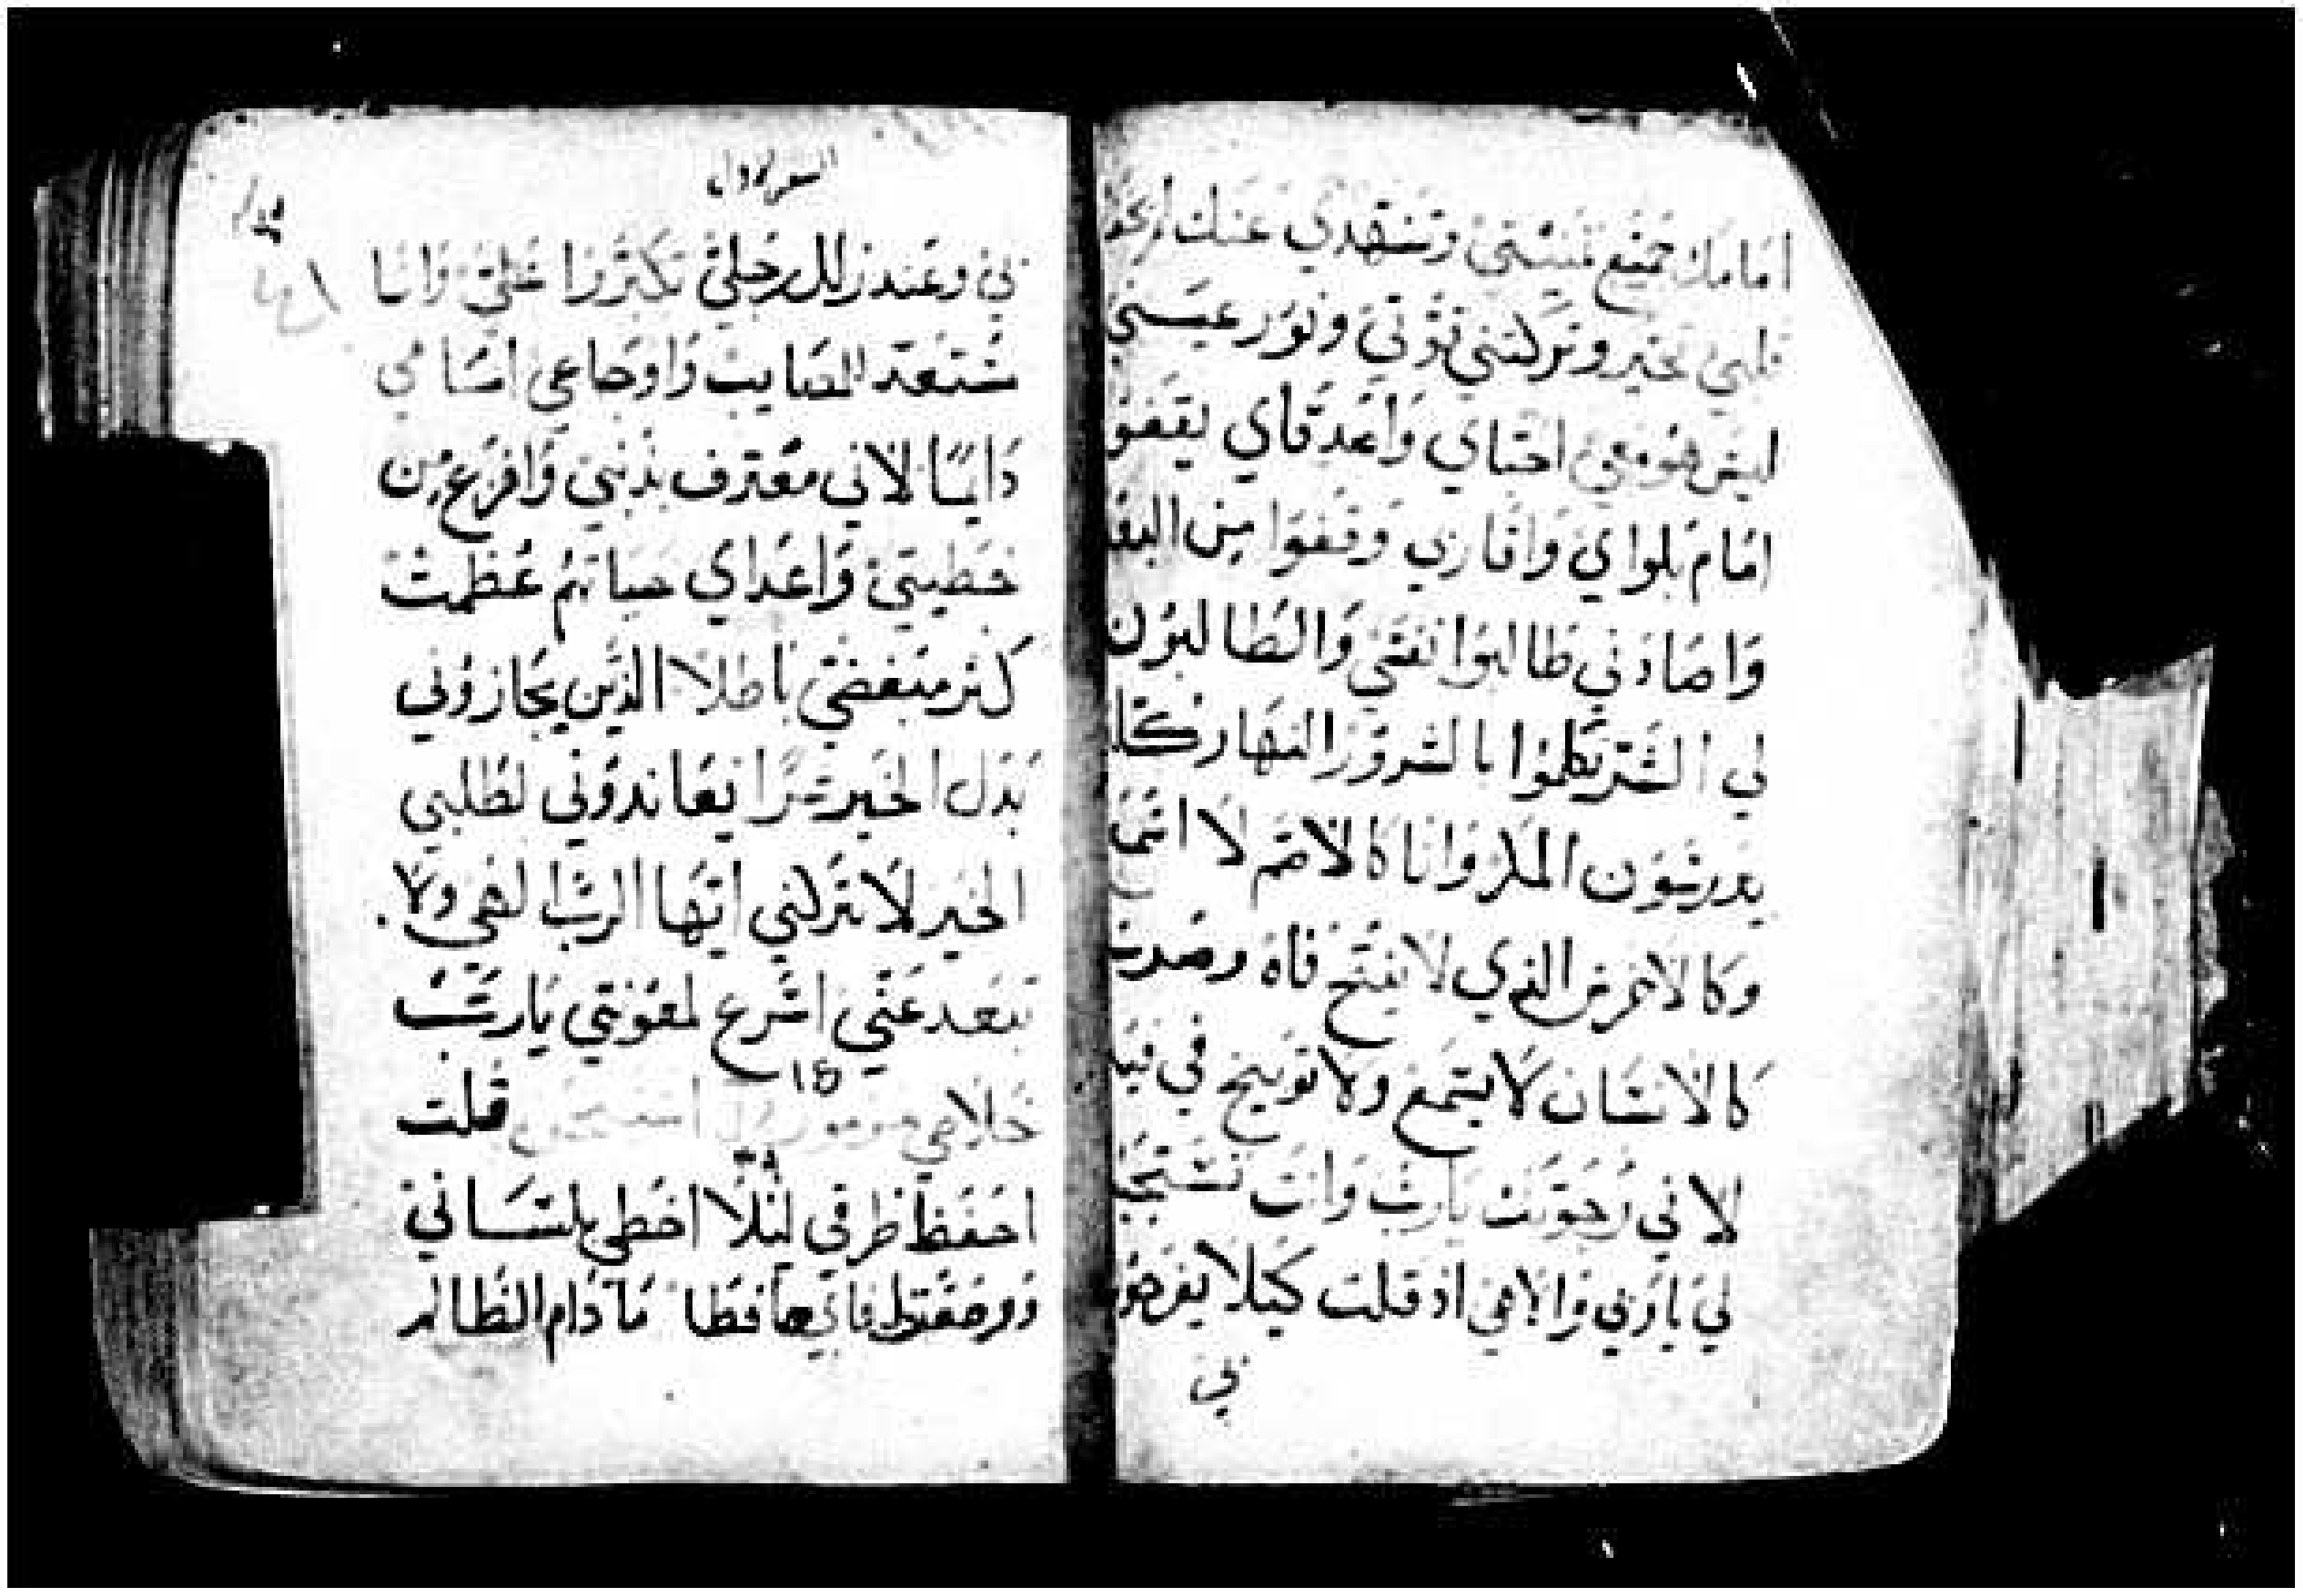 امامك جميع منيتي وتنهدي عنك لم يخفا
قلبي تحير وتركتني قوتي ونور عيني
ليس هو معي احباي واصدقاي يقفوا
امام بلواي واقاربي وقفوا من البعد
واضادني طالبوا نفسي والطالبون
لي الشر تكلموا بالشرور النهار كله
يدرسون المكر وانا كالاصم لا اسمع
وكالاخرس الذي لا يفتح فاه وصرت
كالانسان لا يسمع ولا توبيخ في فيه
لاني رجوتك يارب وانت تستجيب
لي ياربي والاهي اذ قلت كيلا يفرحون
بي
بي وعند زلل رجلي تكبروا علي وانا
مستعد المصايب واوجاعي امامي
دايما لاني معترف بذنبي وافزع من
خطيتي واعداي حياتهم عظمت
كثر مبغضي باطلا الذين يجازوني
بدل الخير شرا يعاندوني لطلبي
الخير لا تتركني ايها الرب الهي ولا
تبعد عني اسرع لمعونتي يارب
خلاصي قلت
احفظ طرقي ليلا اخطي بلساني
ووضعت لفاي حافظا ما دام الظالم